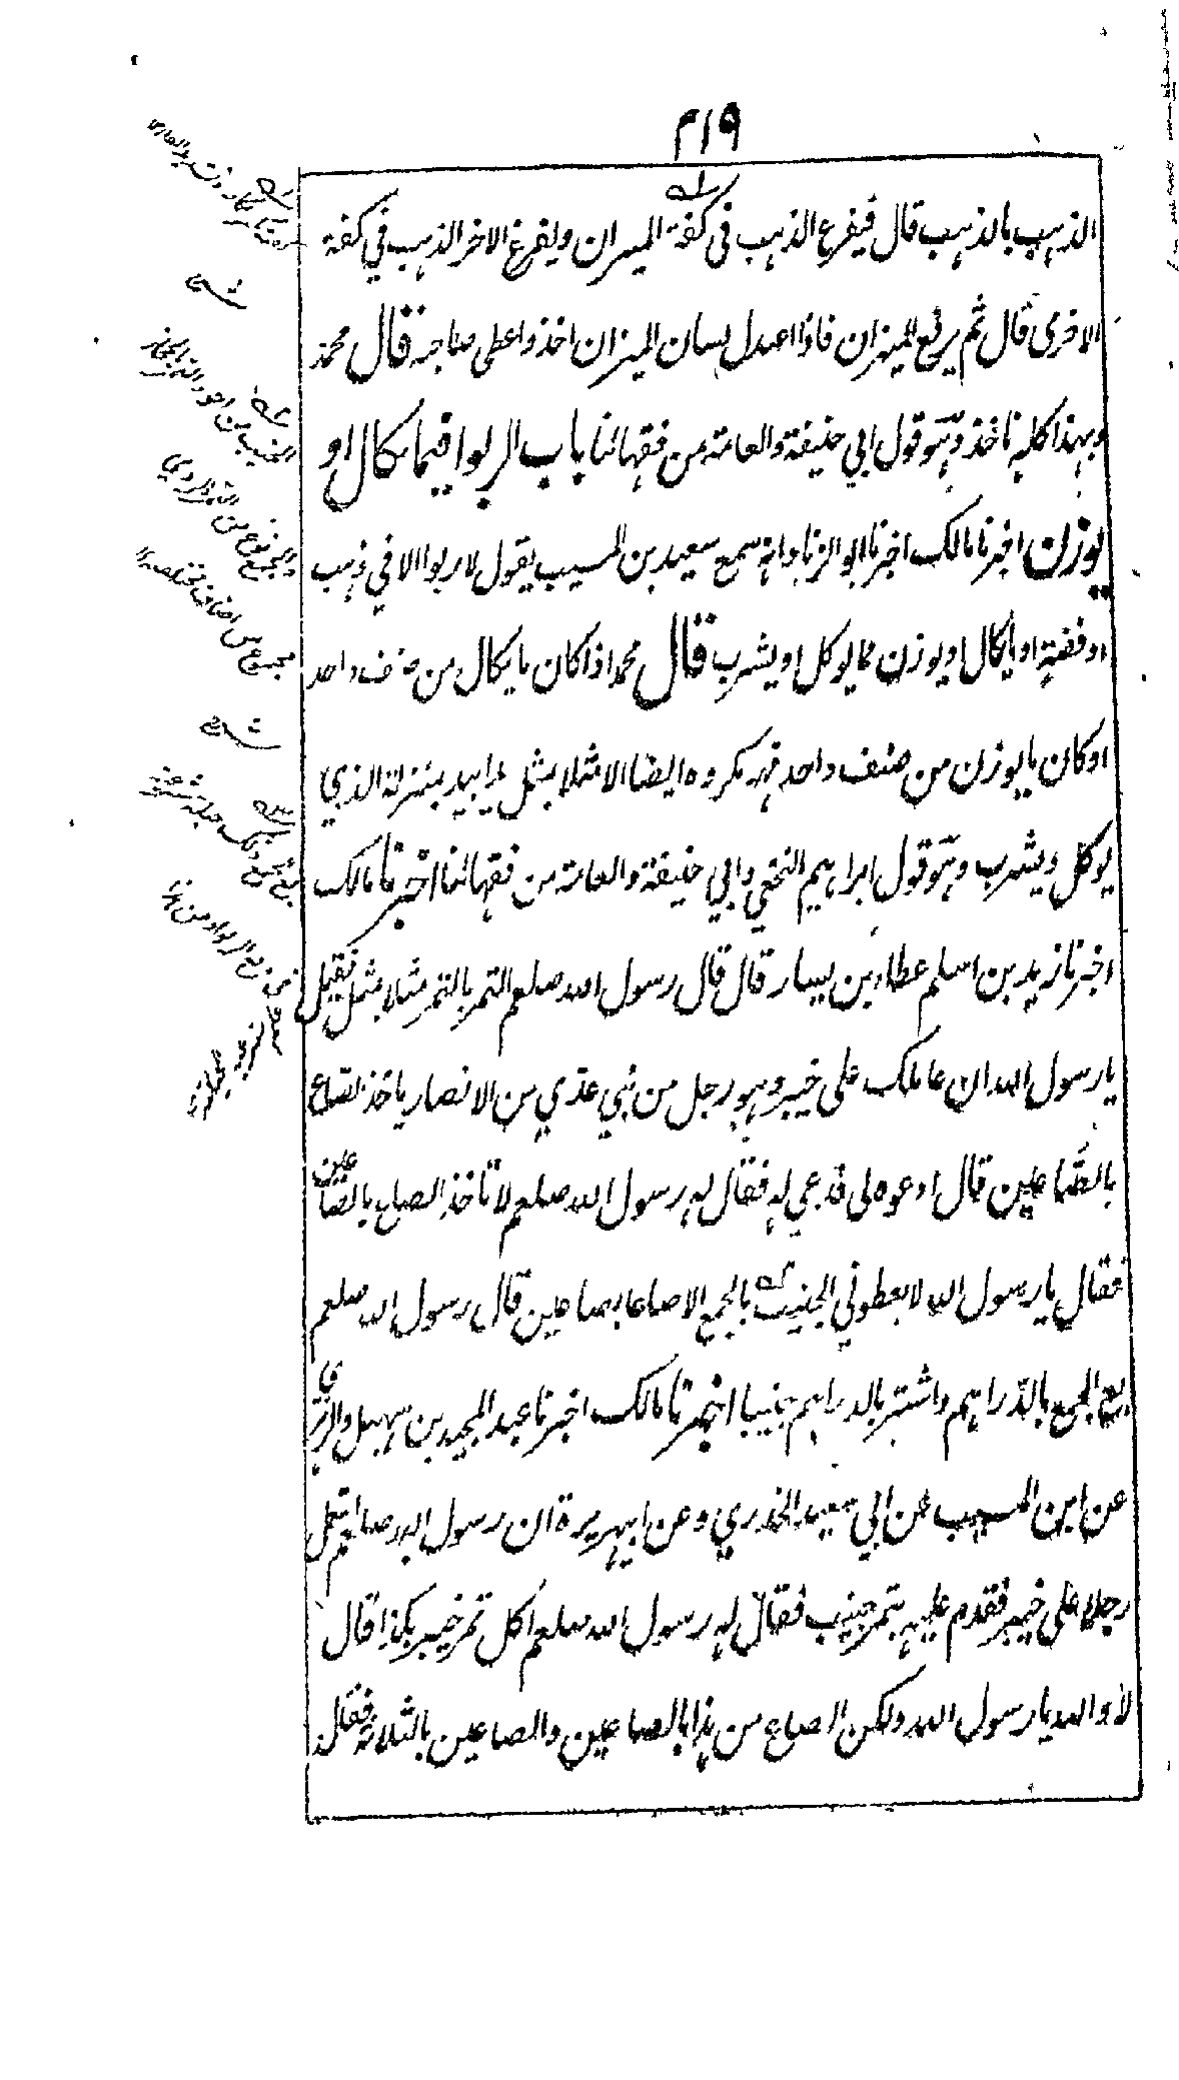 ٣١٩
الذهب بالذهب قال فيفرغ الذهب فى كفة الميزان ويفرغ الاخر الذهب في كفة
الاخرى قال ثم يرفع الميزان فاذا اعتدل لسان الميزان اخذ واعطى صاحبه قال محمد
وبهذا كله ناخذ وهو قول ابي حنيفة والعامة من فقهائنا باب الربوا فيما يكال او
يوزن اخبرنا مالك اخبرنا ابو الزناد انه سمع سعيد بن المسيب يقول لا ربوا الا في ذهب
او فضة او ما يكال او يوزن مما يوكل او يشرب قال محمد اذا كان ما يكال من صنف واحد
او كان ما يوزن من صنف واحد فهو مكروه ايضا الا مثلا بمثل يدا بيد بمنزلة الذي
يوكل ويشرب وهو قول ابراهيم النخعي وابي حنيفة والعامة من فقهائنا اخبرنا مالك
اخبرنا زيد بن اسلم عطاء بن يسار قال قال رسول الله صلعم التمر بالتمر مثلا بمثل فقيل
يا رسول الله ان عاملك على خيبر وهو رجل من بني عدي من الانصار ياخذ الصاع
بالصاعين قال ادعوه لى فدعي له فقال له رسول الله صلعم لا تاخذ الصاع بالصاعين
فقال يا رسول الله لا يعطوني الجنيب بالجمع الا صاعا بصاعين قال رسول الله صلعم
بع الجمع بالدراهم واشتر بالدراهم جنيبا اخبرنا مالك اخبرنا عبد المجيد بن سهيل والزهري
عن ابن المسيب عن ابي سعيد الخدري وعن ابيهريرة ان رسول الله صلعم استعمل
رجلا على خيبر فقدم عليه بتمر جنيب فقال له رسول الله صلعم اكل تمر خيبر هكذا قال
لا والله يا رسول الله ولكن الصاع من هذا بالصاعين والصاعين بالثلاثة فقال